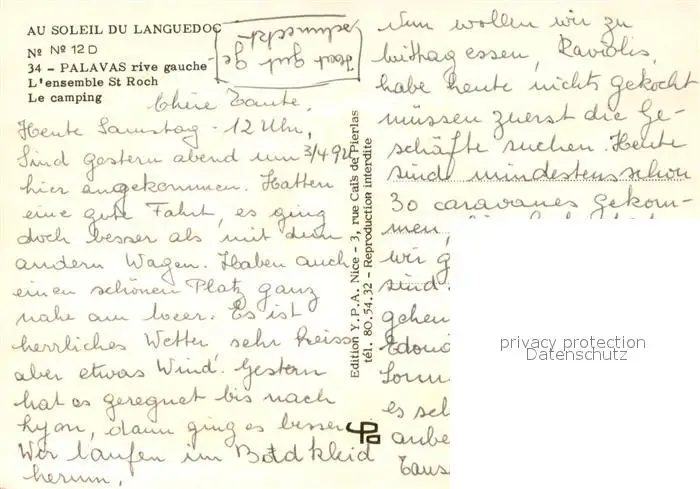 AU SOLEIL DU LANGUEDOC
Nº Nº 12 D
34 - PALAVAS rive gauche
L'ensemble St Roch
Le camping
Hat gut ge-
schmeckt
Chère Tante,
Heute Samstag - 12 Uhr,
Sind gestern abend um 3/4 9h
hier angekommen. Hatten
eine gute Fahrt, es ging
doch besser als mit dem
andern Wagen. Haben auch
einen schönen Platz ganz
nahe am Meer. Es ist
herrliches Wetter sehr heiss
aber etwas Wind. Gestern
hat es geregnet bis nach
Lyon, dann ging es besser
Wir laufen im Badkleid
herum.
Edition Y.P.A. Nice - 3, rue Caïs de Pierlas
tél. 80.54.32 - Reproduction interdite
Nun wollen wir zu
Mittag essen, Raviolis,
habe heute nichts gekocht
müssen zuerst die Ge-
schäfte suchen. Heute
sind mindestens schon
30 caravanes gekom-
men,
wir g
sind.
gehen
Edou
es sel
aube
Taus
privacy protection
Datenschutz